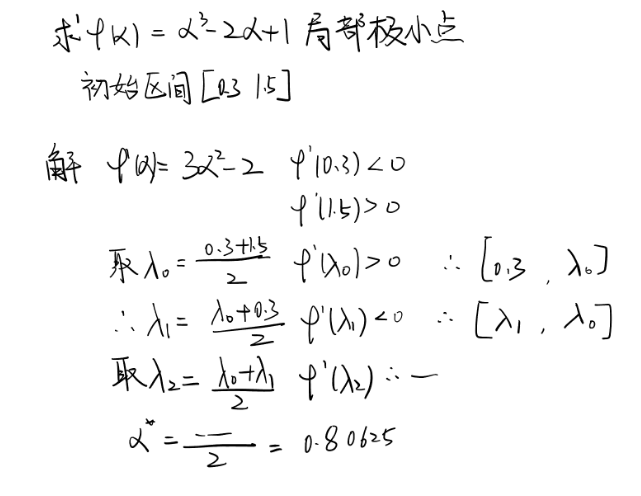 求 φ(α) = α³-2α+1 局部极小点
初始区间 [0.3 1.5]
解 φ'(α) = 3α²-2 φ'(0.3) < 0
φ'(1.5) > 0
取 λ₀ = (0.3+1.5)/2 φ'(λ₀) > 0 ∴ [0.3, λ₀]
∴ λ₁ = (λ₀+0.3)/2 φ'(λ₁) < 0 ∴ [λ₁, λ₀]
取 λ₂ = (λ₀+λ₁)/2 φ'(λ₂) ∴ —
α* = —/2 = 0.80625